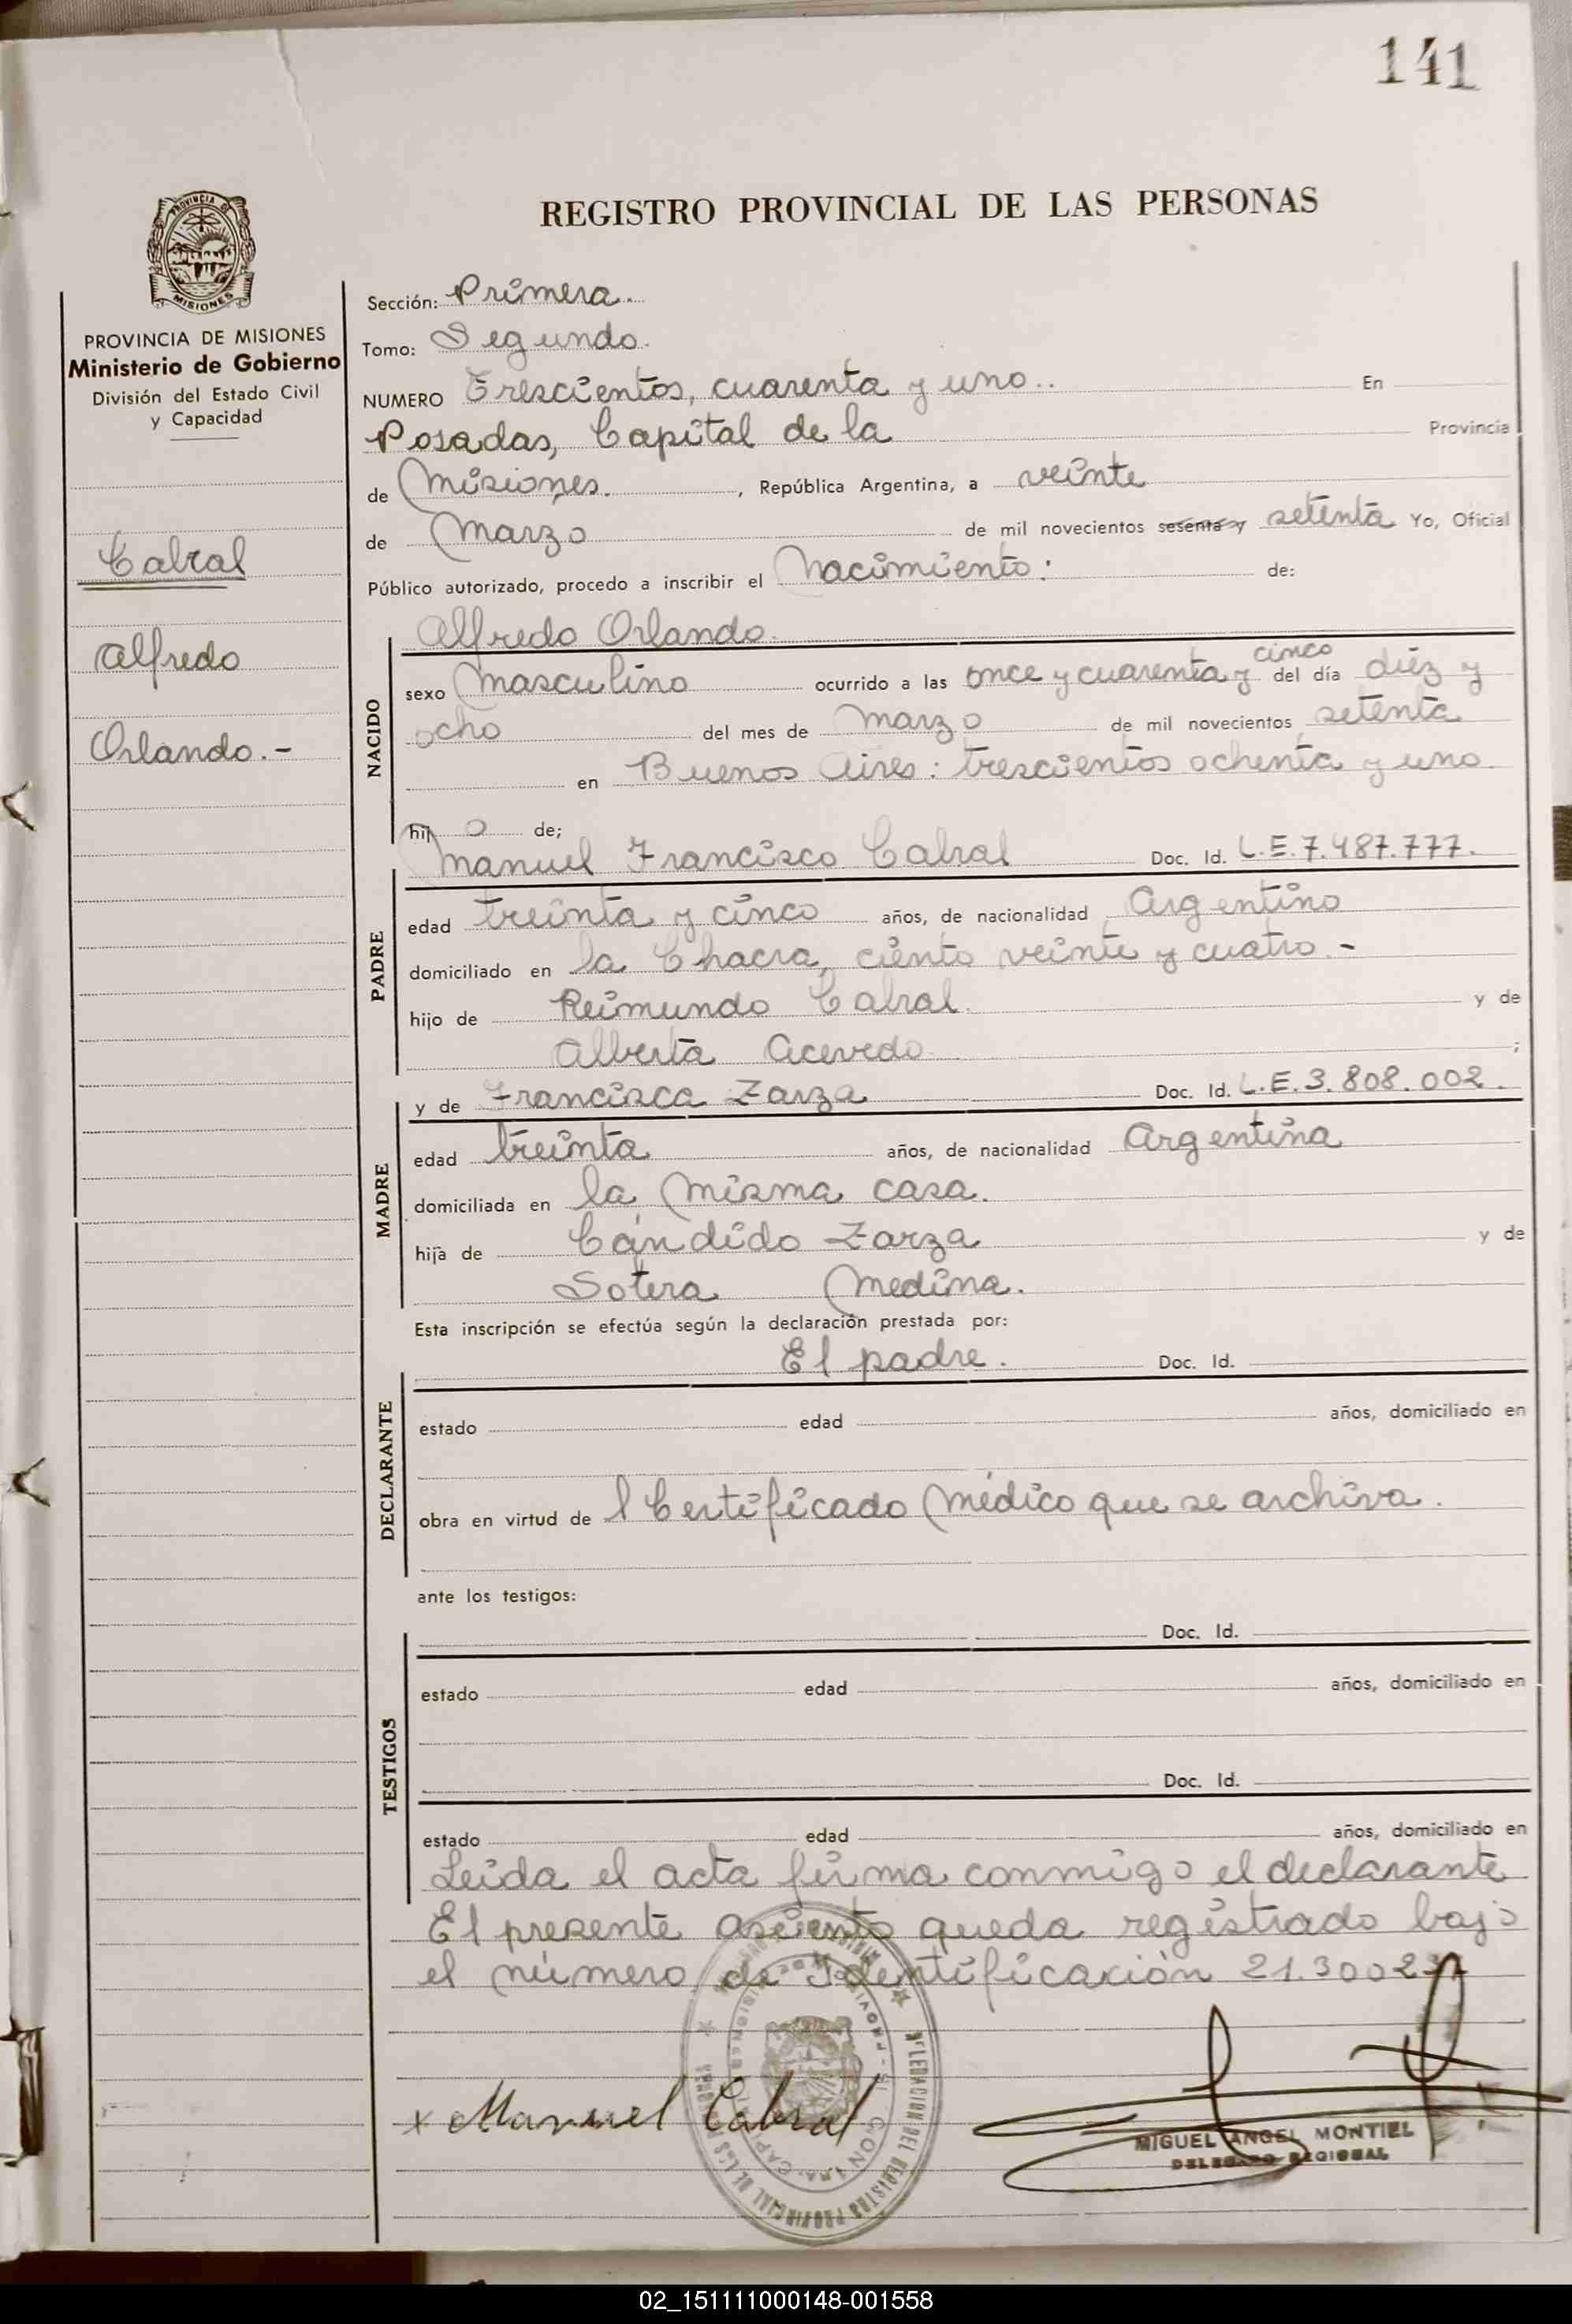 141
REGISTRO PROVINCIAL DE LAS PERSONAS
PROVINCIA DE MISIONES
PROVINCIA DE MISIONES
Ministerio de Gobierno
División del Estado Civil
y Capacidad
Cabral
Alfredo
Orlando.-
Sección: Primera.
Tomo: Segundo.
NUMERO Trescientos, cuarenta y uno.. En
Posadas, Capital de la Provincia
de Misiones. , República Argentina, a veinte
de Marzo de mil novecientos sesenta y setenta Yo, Oficial
Público autorizado, procedo a inscribir el Nacimiento: de:
Alfredo Orlando.
NACIDO
cinco
sexo Masculino ocurrido a las once y cuarenta y del día diéz y
ocho del mes de Marzo de mil novecientos setenta
en Buenos Aires: trescientos ochenta y uno.
hij o de;
Manuel Francisco Cabral Doc. Id. L.E.7.487.777.
PADRE
edad treinta y cinco años, de nacionalidad Argentino
domiciliado en la Chacra, ciento veinte y cuatro.-
hijo de Reimundo Cabral. y de
Alberta Acevedo. ;
y de Francisca Zarza Doc. Id. L.E.3.808.002.
MADRE
edad treinta años, de nacionalidad Argentina
domiciliada en la Misma casa.
hija de Cándido Zarza y de
Sotera Medina.
Esta inscripción se efectúa según la declaración prestada por:
El padre. Doc. Id.
DECLARANTE
estado edad años, domiciliado en
obra en virtud de l Certificado Médico que se archiva.
ante los testigos:
Doc. Id.
TESTIGOS
estado edad años, domiciliado en
Doc. Id.
estado edad años, domiciliado en
Leida el acta firma conmigo el declarante
El presente asiento queda registrado bajo
el número de Identificación
x Manuel Cabral
MIGUEL ANGEL MONTIEL
DELEGADO REGIONAL
DELEGACION DEL REGISTRO PROVINCIAL DE LAS PERSONAS
02_151111000148-001558